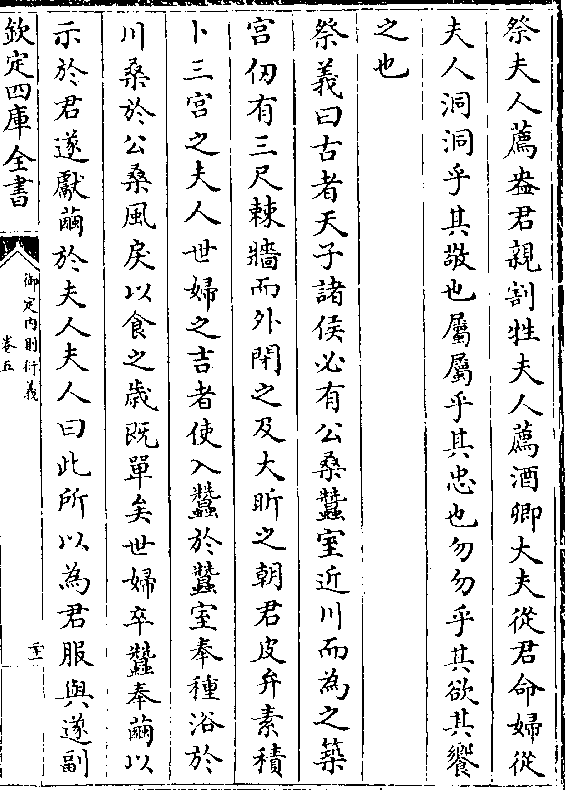 祭夫人薦盎君親割牲夫人薦酒卿大夫從君命婦從
夫人洞洞乎其敬也屬屬乎其忠也勿勿乎其欲其饗
之也
祭義曰古者天子諸侯必有公桑蠶室近川而為之築
宮仞有三尺棘牆而外閉之及大昕之朝君皮弁素積
卜三宮之夫人世婦之吉者使入蠶於蠶室奉種浴於
川桑於公桑風戾以食之歲既單矣世婦卒蠶奉繭以
示於君遂獻繭於夫人夫人曰此所以為君服與遂副
欽定四庫全書
御定內則衍義
卷五